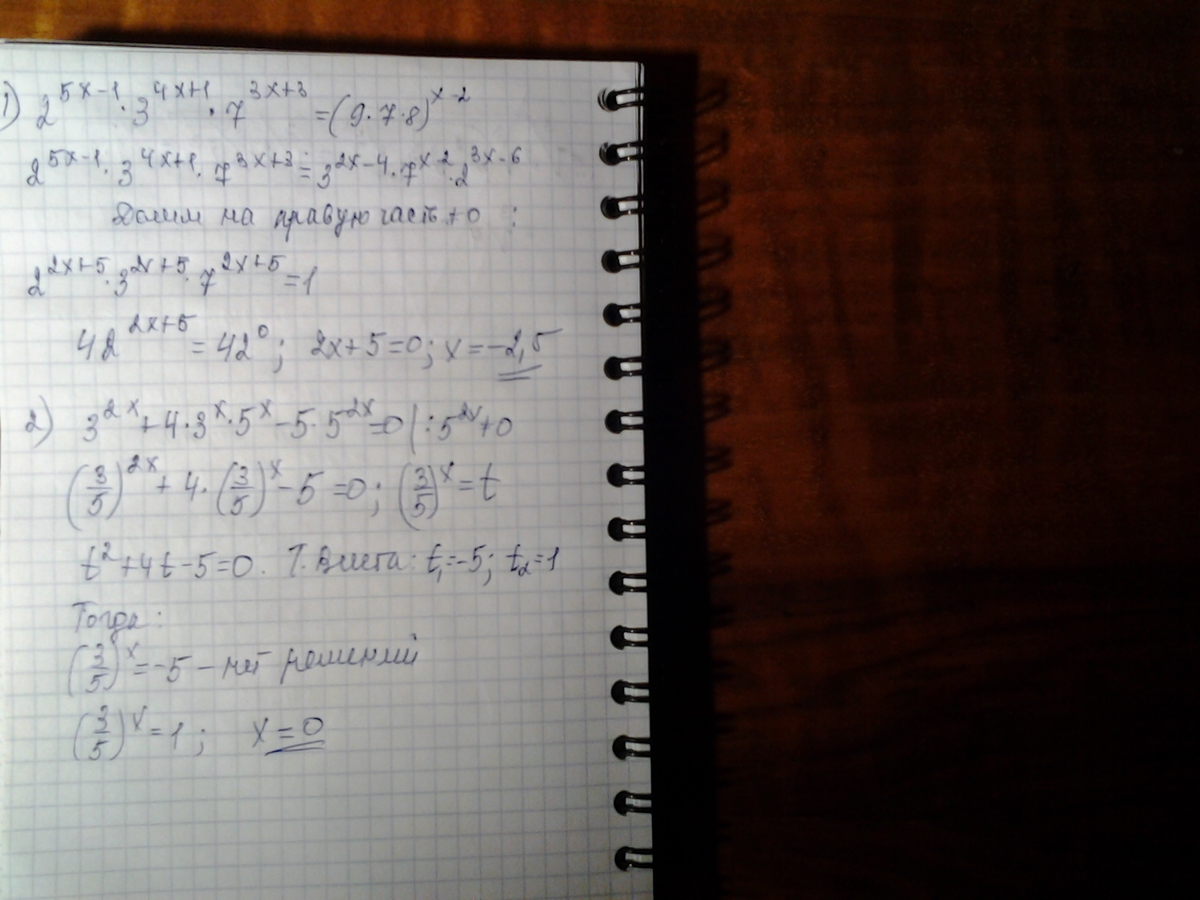 1) 2^{5x-1}·3^{4x+1}·7^{3x+3}=(9·7·8)^{x-2}
2^{5x-1}·3^{4x+1}·7^{3x+3}=3^{2x-4}·7^{x-2}·2^{3x-6}
Делим на правую часть ≠0 :
2^{2x+5}·3^{2x+5}·7^{2x+5}=1
42^{2x+5}=42^0; 2x+5=0; x=-2,5
2) 3^{2x}+4·3^x·5^x-5·5^{2x}=0|:5^{2x}≠0
(3/5)^{2x}+4·(3/5)^x-5=0; (3/5)^x=t
t²+4t-5=0. Т. Виета: t₁=-5; t₂=1
Тогда:
(3/5)^x=-5 – нет решений
(3/5)^x=1; x=0